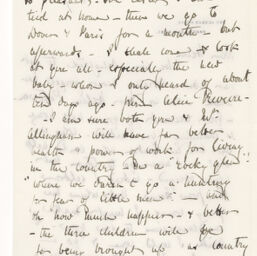 tied at home - then we go to
Dover & Paris for a month - but
afterwards - I shall come & look
at you all - especially the new
baby - whom I only heard of about
ten days ago - from Alice
- I am sure both you & Mr
Allingham will have far better
health & power of work for living
in the country - in a "rocky glen"
"where we daren't go a hunting
for fear of little men" - and
oh how much happier - & better
- the three children will be
for being brought up as country